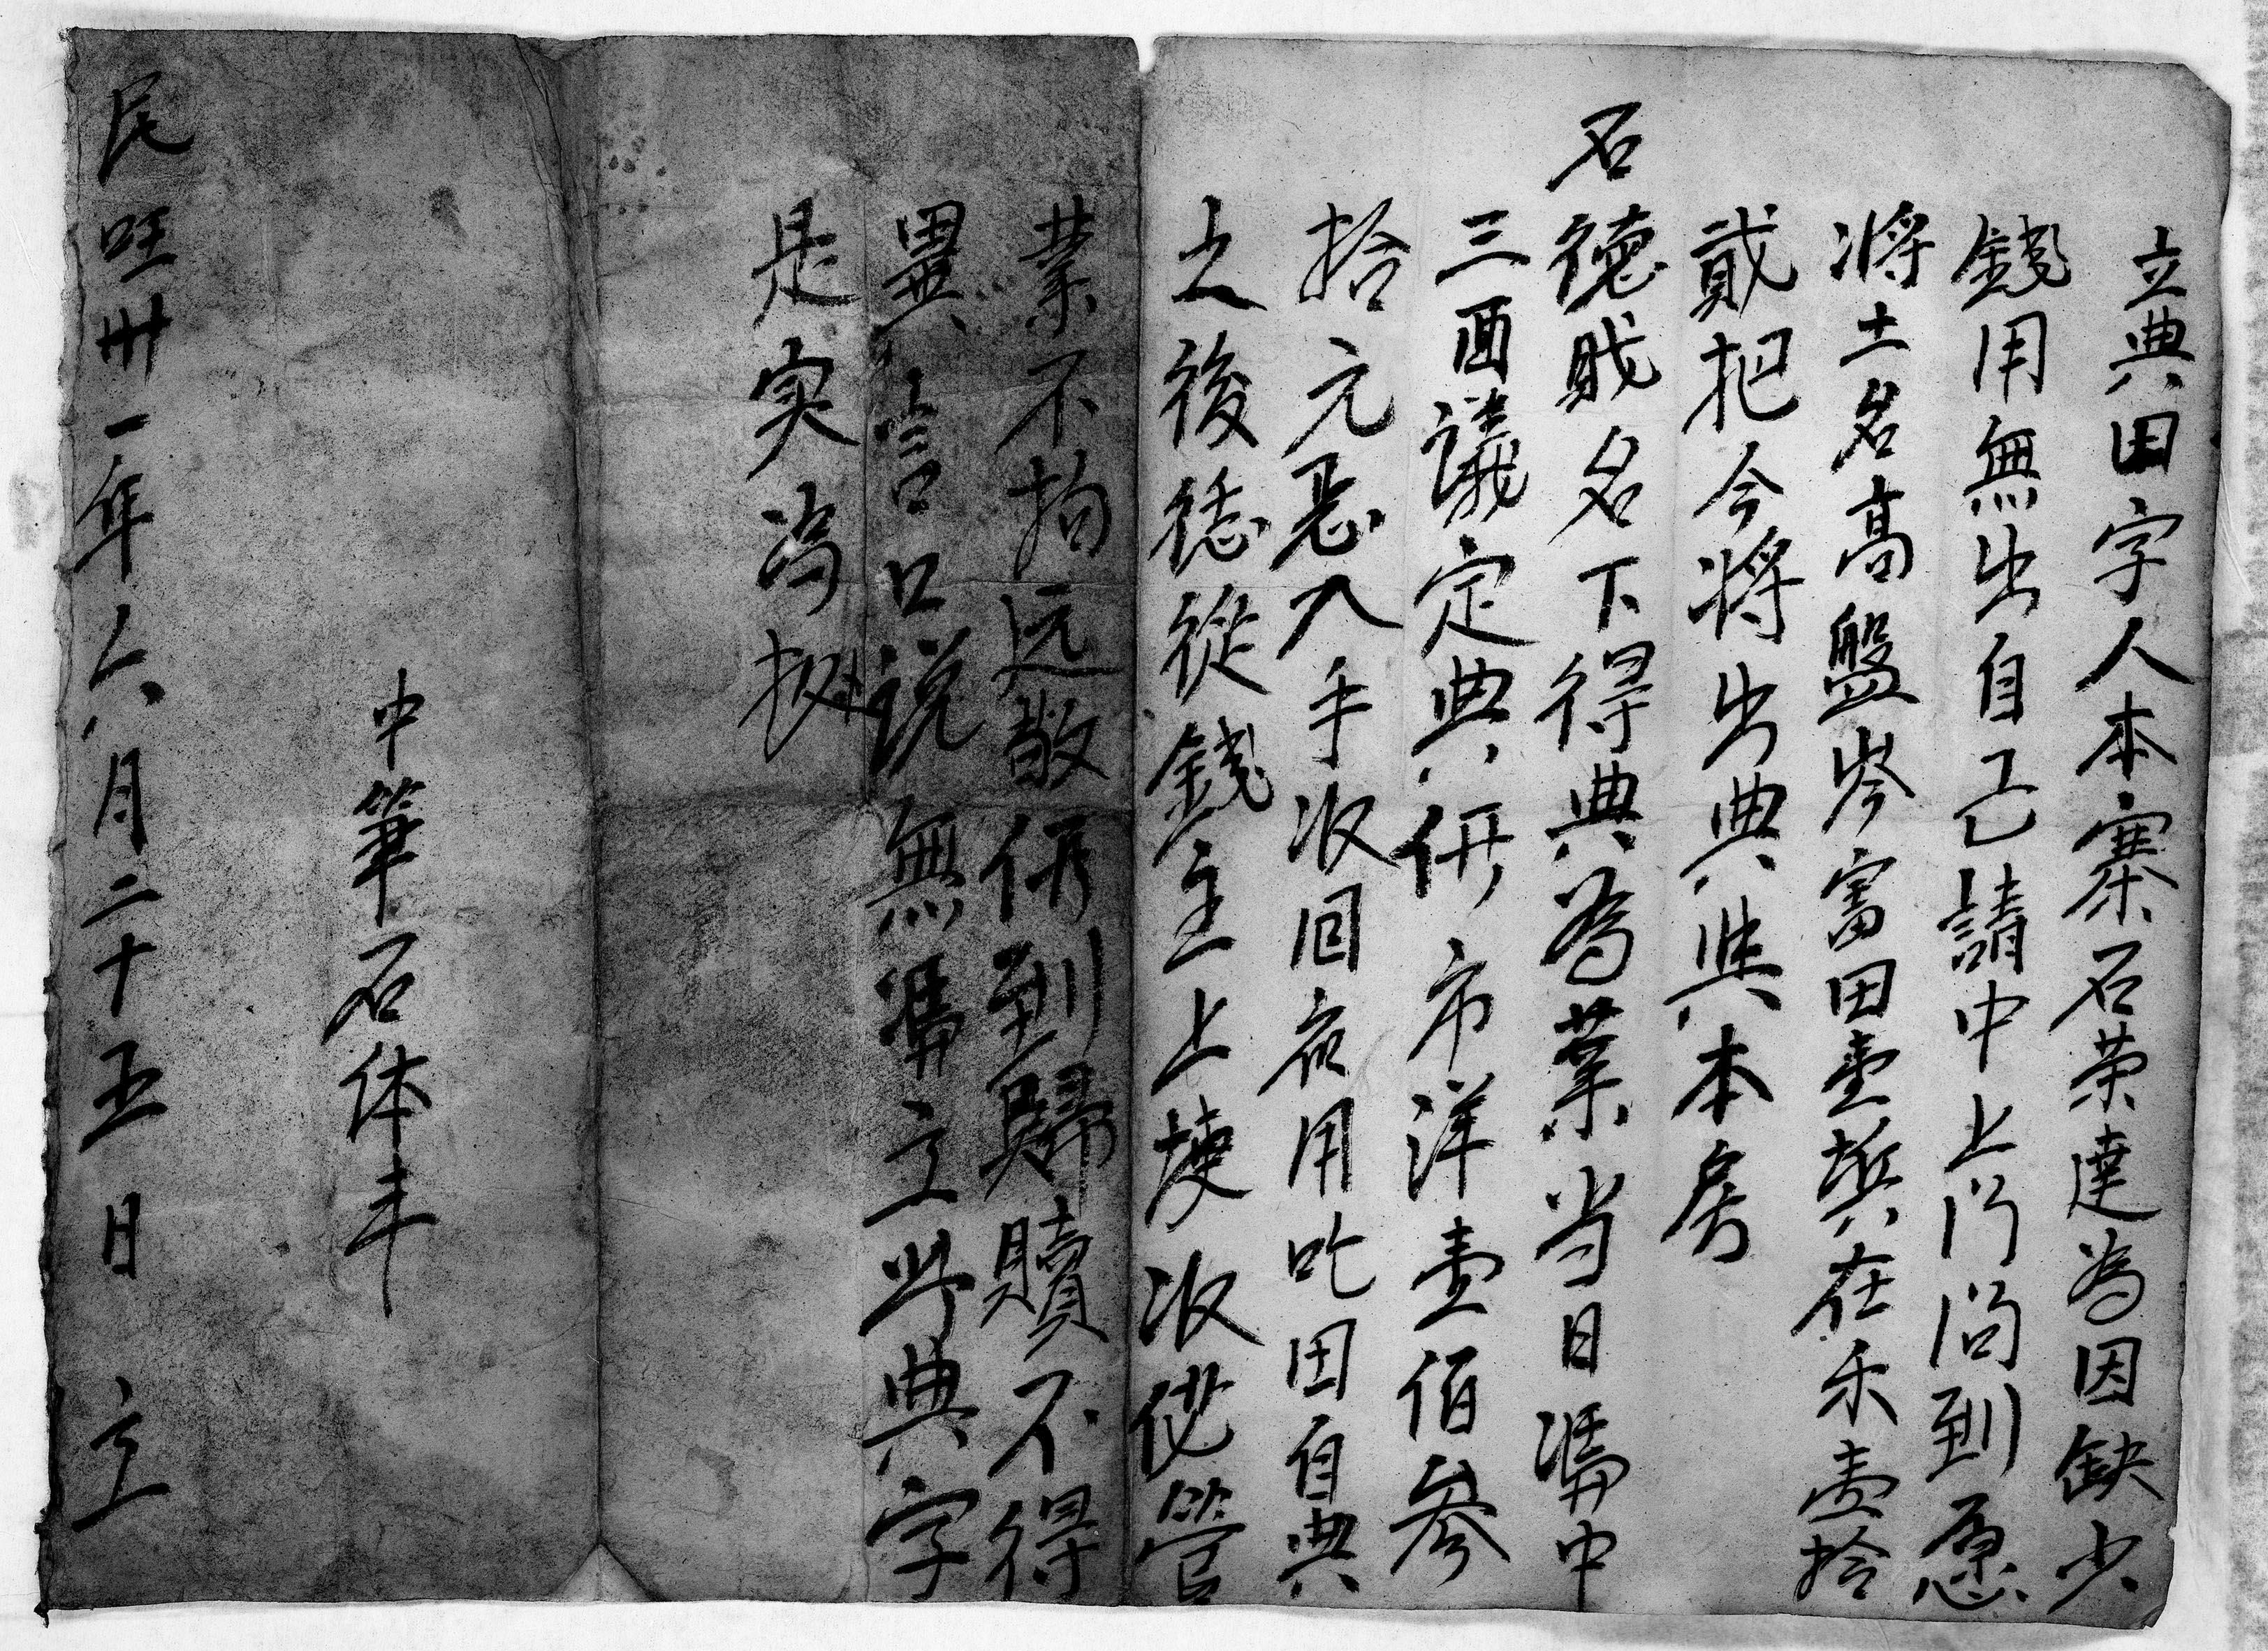 立典田字人本寨石荣達為因缺少
錢用無出自己請中上门问到愿
将土名高盤岑富田壹坵在禾壹拾
貳把今将出典典本房
石德賎名下得典為業当日馮中
三面議定典價市洋壹佰參
拾元忌入手收回右用叱田自典
之後德從錢主上埂收花管
業不拘远敬價到歸贖不得
異言口说無憑立此典字
是实為扱
中筆石体丰
民国卅一年六月二十五日 立